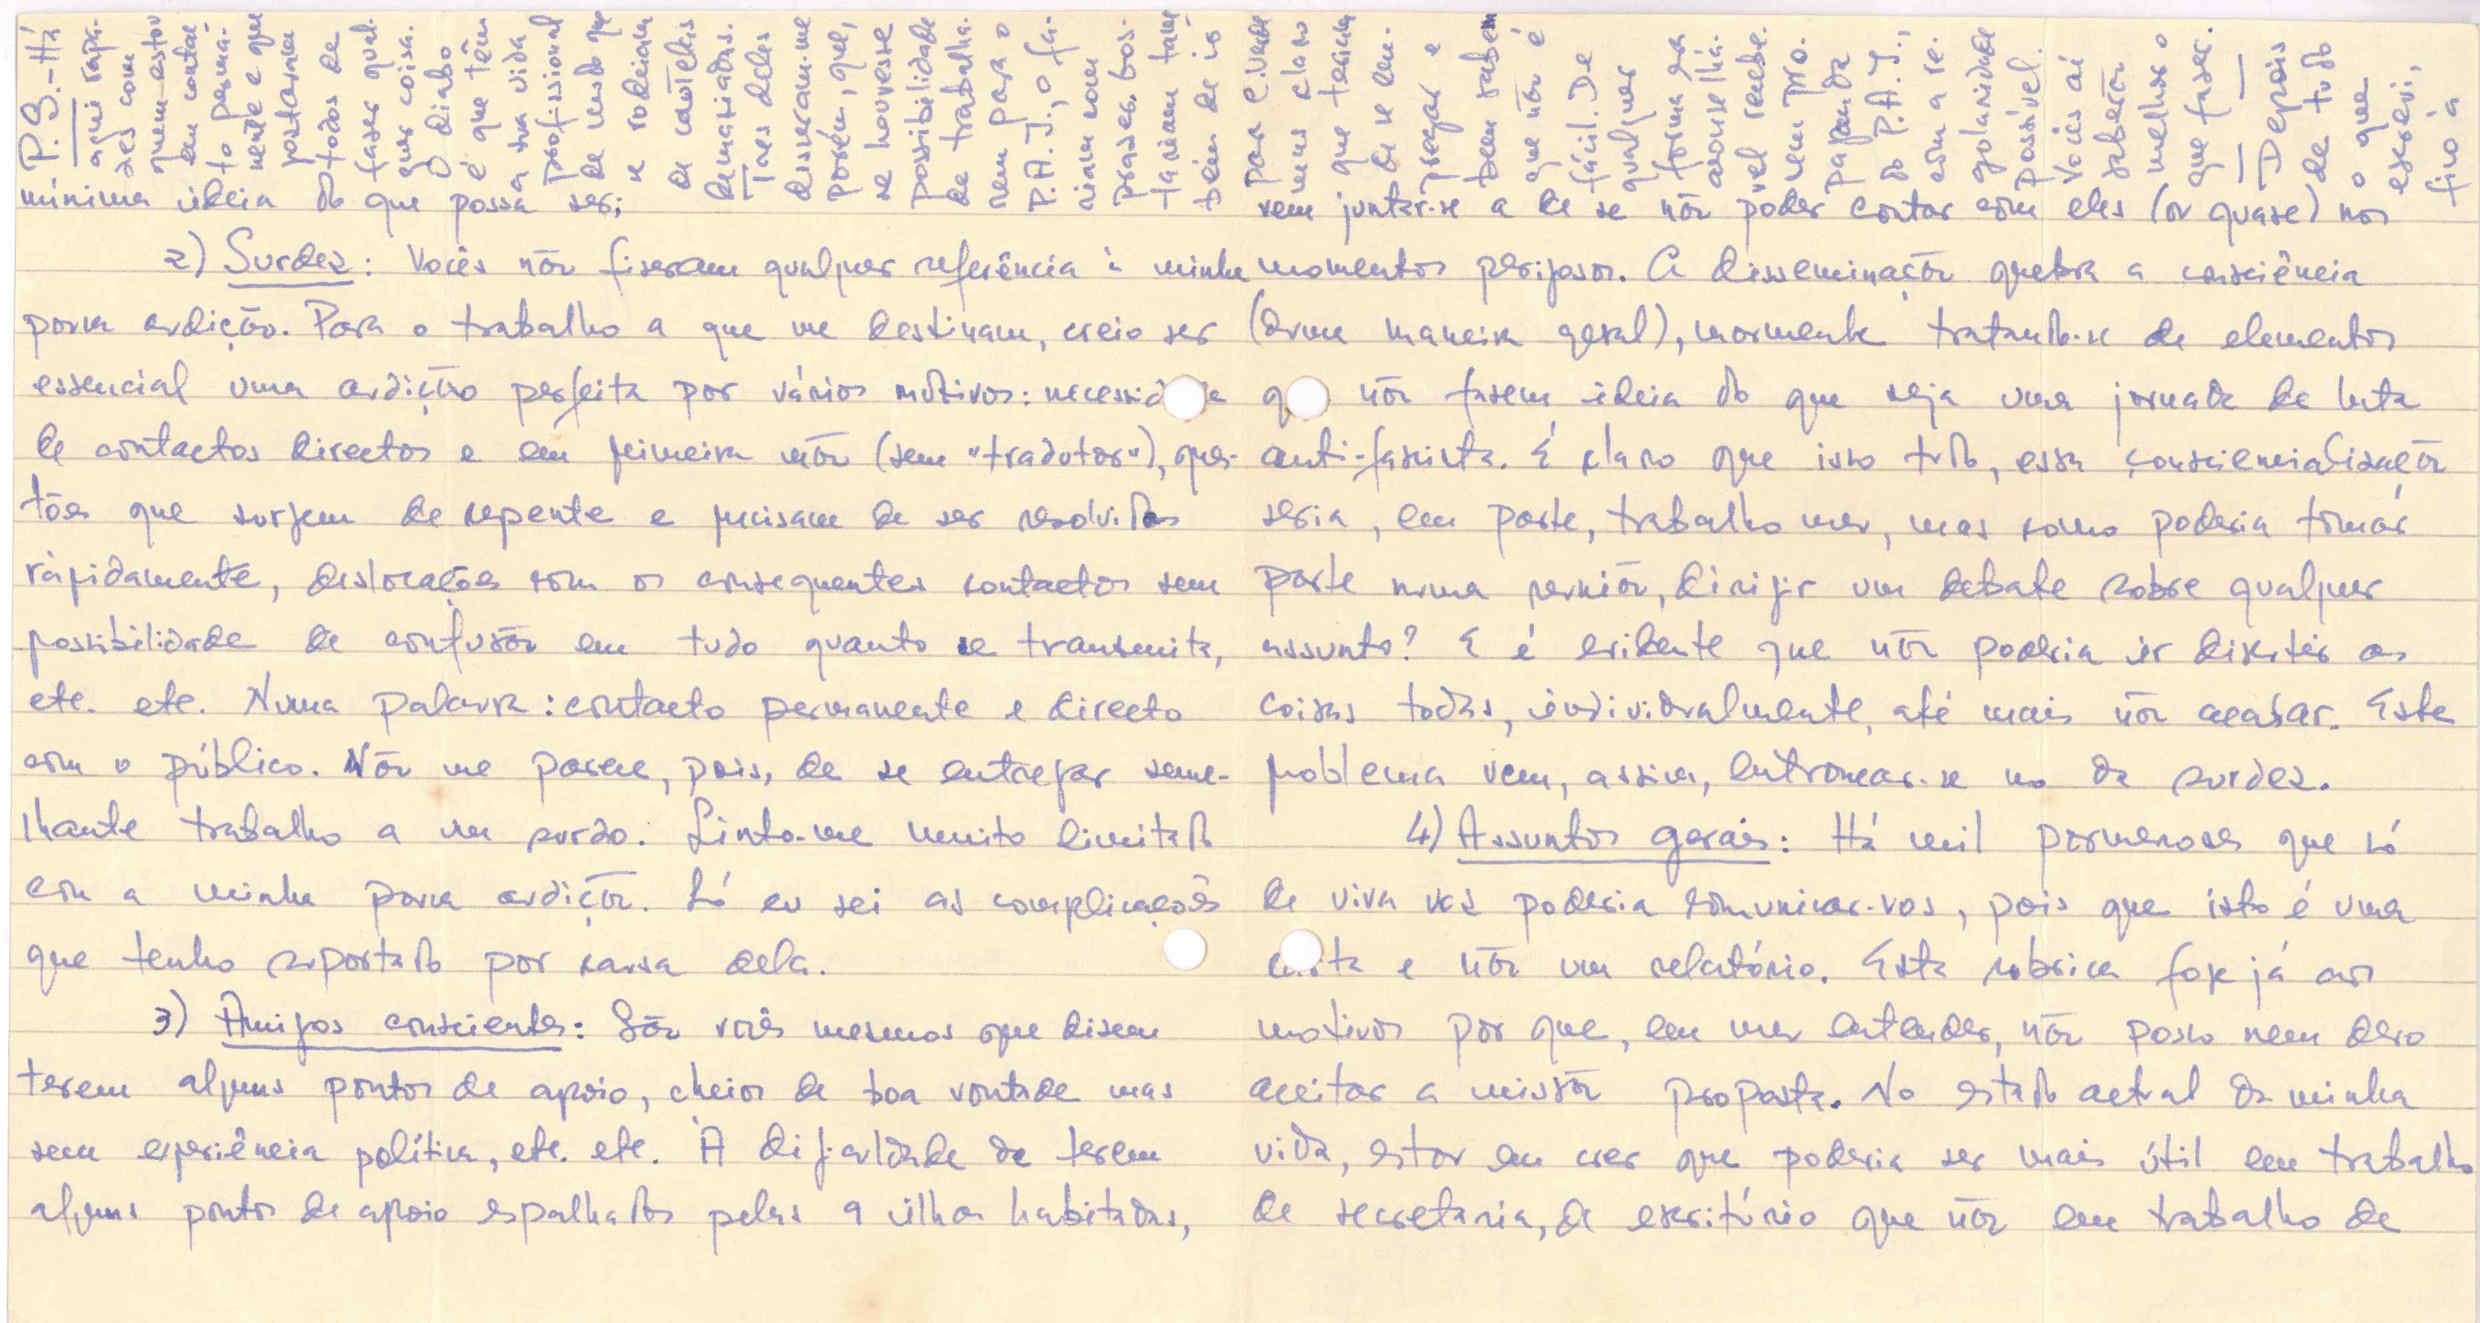 mínima ideia do que possa ser;
2) Surdez: Vocês não fizeram qualquer referência à minha
pouca audição. Para o trabalho a que me destinam, creio ser
essencial uma audição perfeita por vários motivos: necessidade
de contactos directos e em primeira mão (sem "tradutor"), ques-
tões que surjem de repente e precisam de ser resolvidas
ràpidamente, deslocações com os consequentes contactos sem
possibilidade de confusão em tudo quanto se transmita,
etc. etc. Numa palavra: contacto permanente e directo
com o público. Não me parece, pois, de se entregar seme-
lhante trabalho a um surdo. Sinto-me muito limitado
com a minha pouca audição. Só eu sei as complicações
que tenho suportado por causa dela.
3) Amigos conscientes: São vocês mesmos que dizem
terem alguns pontos de apoio, cheios de boa vontade mas
sem experiência política, etc. etc. À dificuldade de terem
alguns pontos de apoio espalhados pelas 9 ilhas habitadas,
vem juntar-se a de se não poder contar com eles (ou quase) nos
momentos perigosos. A disseminação quebra a consciência
(duma maneira geral), mormente tratando-se de elementos
que não fazem ideia do que seja uma jornada de luta
anti-fascista. É claro que isso tudo, essa consciencialização
seria, em parte, trabalho meu, mas como poderia tomar
parte numa reunião, dirigir um debate sobre qualquer
assunto? E é evidente que não poderia ir discutir as
coisas todas, individualmente, até mais não acabar. Este
problema vem, assim, entroncar-se no da surdez.
4) Assuntos gerais: Há mil pormenores que só
de viva voz poderia comunicar-vos, pois que isto é uma
carta e não um relatório. Esta rubrica foge já aos
motivos por que, em meu entender, não posso nem devo
aceitar a missão proposta. No estado actual da minha
vida, estou em crer que poderia ser mais útil em trabalho
de secretaria, de escritório que não em trabalho de
P.S. - Há
aqui rapa-
zes com
quem estou
em contac-
to perma-
nente e que
gostariam
todos de
fazer qual-
quer coisa.
O diabo
é que têm
a sua vida
profissional
de modo que
se rodeiam
de cautelas
demasiadas.
Três deles
disseram-me
porém, que,
se houvesse
possibilidade
de trabalha-
rem para o
P.A.J., o fa-
riam com
prazer. Gos-
tariam tam-
bém de ir
para C. Verde
mas claro
que teriam
de se em-
pregar e
bem sabem
que não é
fácil. De
qualquer
forma era
aconselhá-
vel recebe-
rem pro-
paganda
do P.A.J.,
com a re-
gularidade
possível.
Vocês aí
saberão
melhor o
que fazer.
— —
Depois
de tudo
o que
escrevi,
fico à